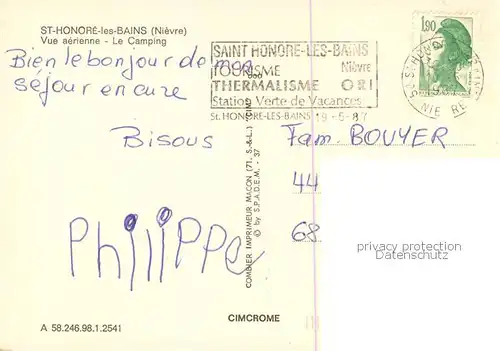 ST-HONORÉ-les-BAINS (Nièvre)
Vue aérienne - Le Camping
Bien le bonjour de mon
séjour en cure
Bisous
Philippe
A 58.246.98.1.2541
COMBIER IMPRIMEUR MACON (71. S.-&-L.)
© by S.P.A.D.E.M. - 37
CIMCROME
SAINT HONORE-LES-BAINS
TOURISME Nièvre
THERMALISME ORL
Station Verte de Vacances
St. HONORE-LES-BAINS 19-5-87
1,90
Fam. BOUYER
44
68
privacy protection
Datenschutz